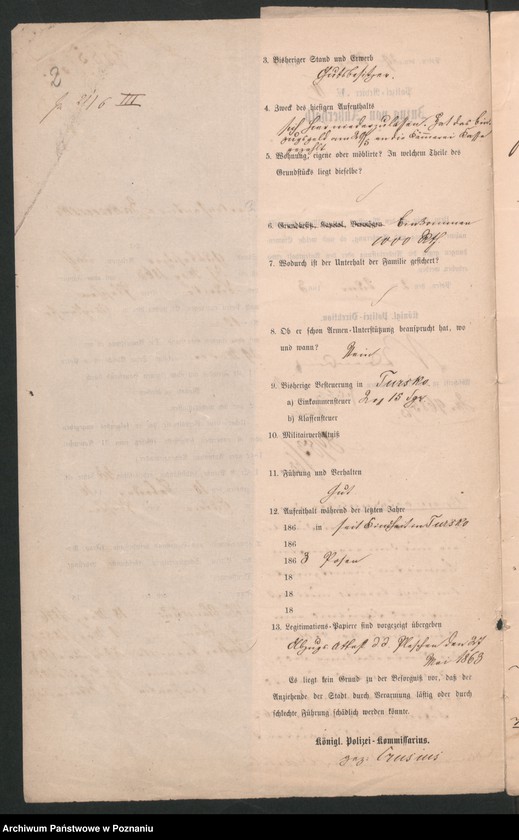 2
3. Bisheriger Stand und Erwerb
Gutsbesitzer.
4. Zweck des hiesigen Aufenthalts
sich hier niederzulassen. Hat das
5. Wohnung, eigene oder möblirte? In welchem Theile des
Grundstücks liegt dieselbe?
6. Grundbesitz, Kapital, Vermögen. Einkommen
1000
7. Wodurch ist der Unterhalt der Familie gesichert?
8. Ob er schon Armen-Unterstützung beansprucht hat, wo
und wann?
Nein
9. Bisherige Besteuerung in Tursko
a) Einkommensteuer 15 Sgr
b) Klassensteuer
10. Militairverhältniß
11. Führung und Verhalten
Gut
12. Aufenthalt während der letzten Jahre
186 in seit Kindheit in Tursko
186
186 3 Posen
18
18
18
13. Legitimations-Papiere sind vorgezeigt übergeben
Abzugs Attest d d Pleschen den 27
Mai 1863
Es liegt kein Grund zu der Besorgniß vor, daß der
Anziehende der Stadt durch Verarmung lästig oder durch
schlechte Führung schädlich werden könnte.
Königl. Polizei-Kommissarius.
gez. Crusius
Archiwum Państwowe w Poznaniu